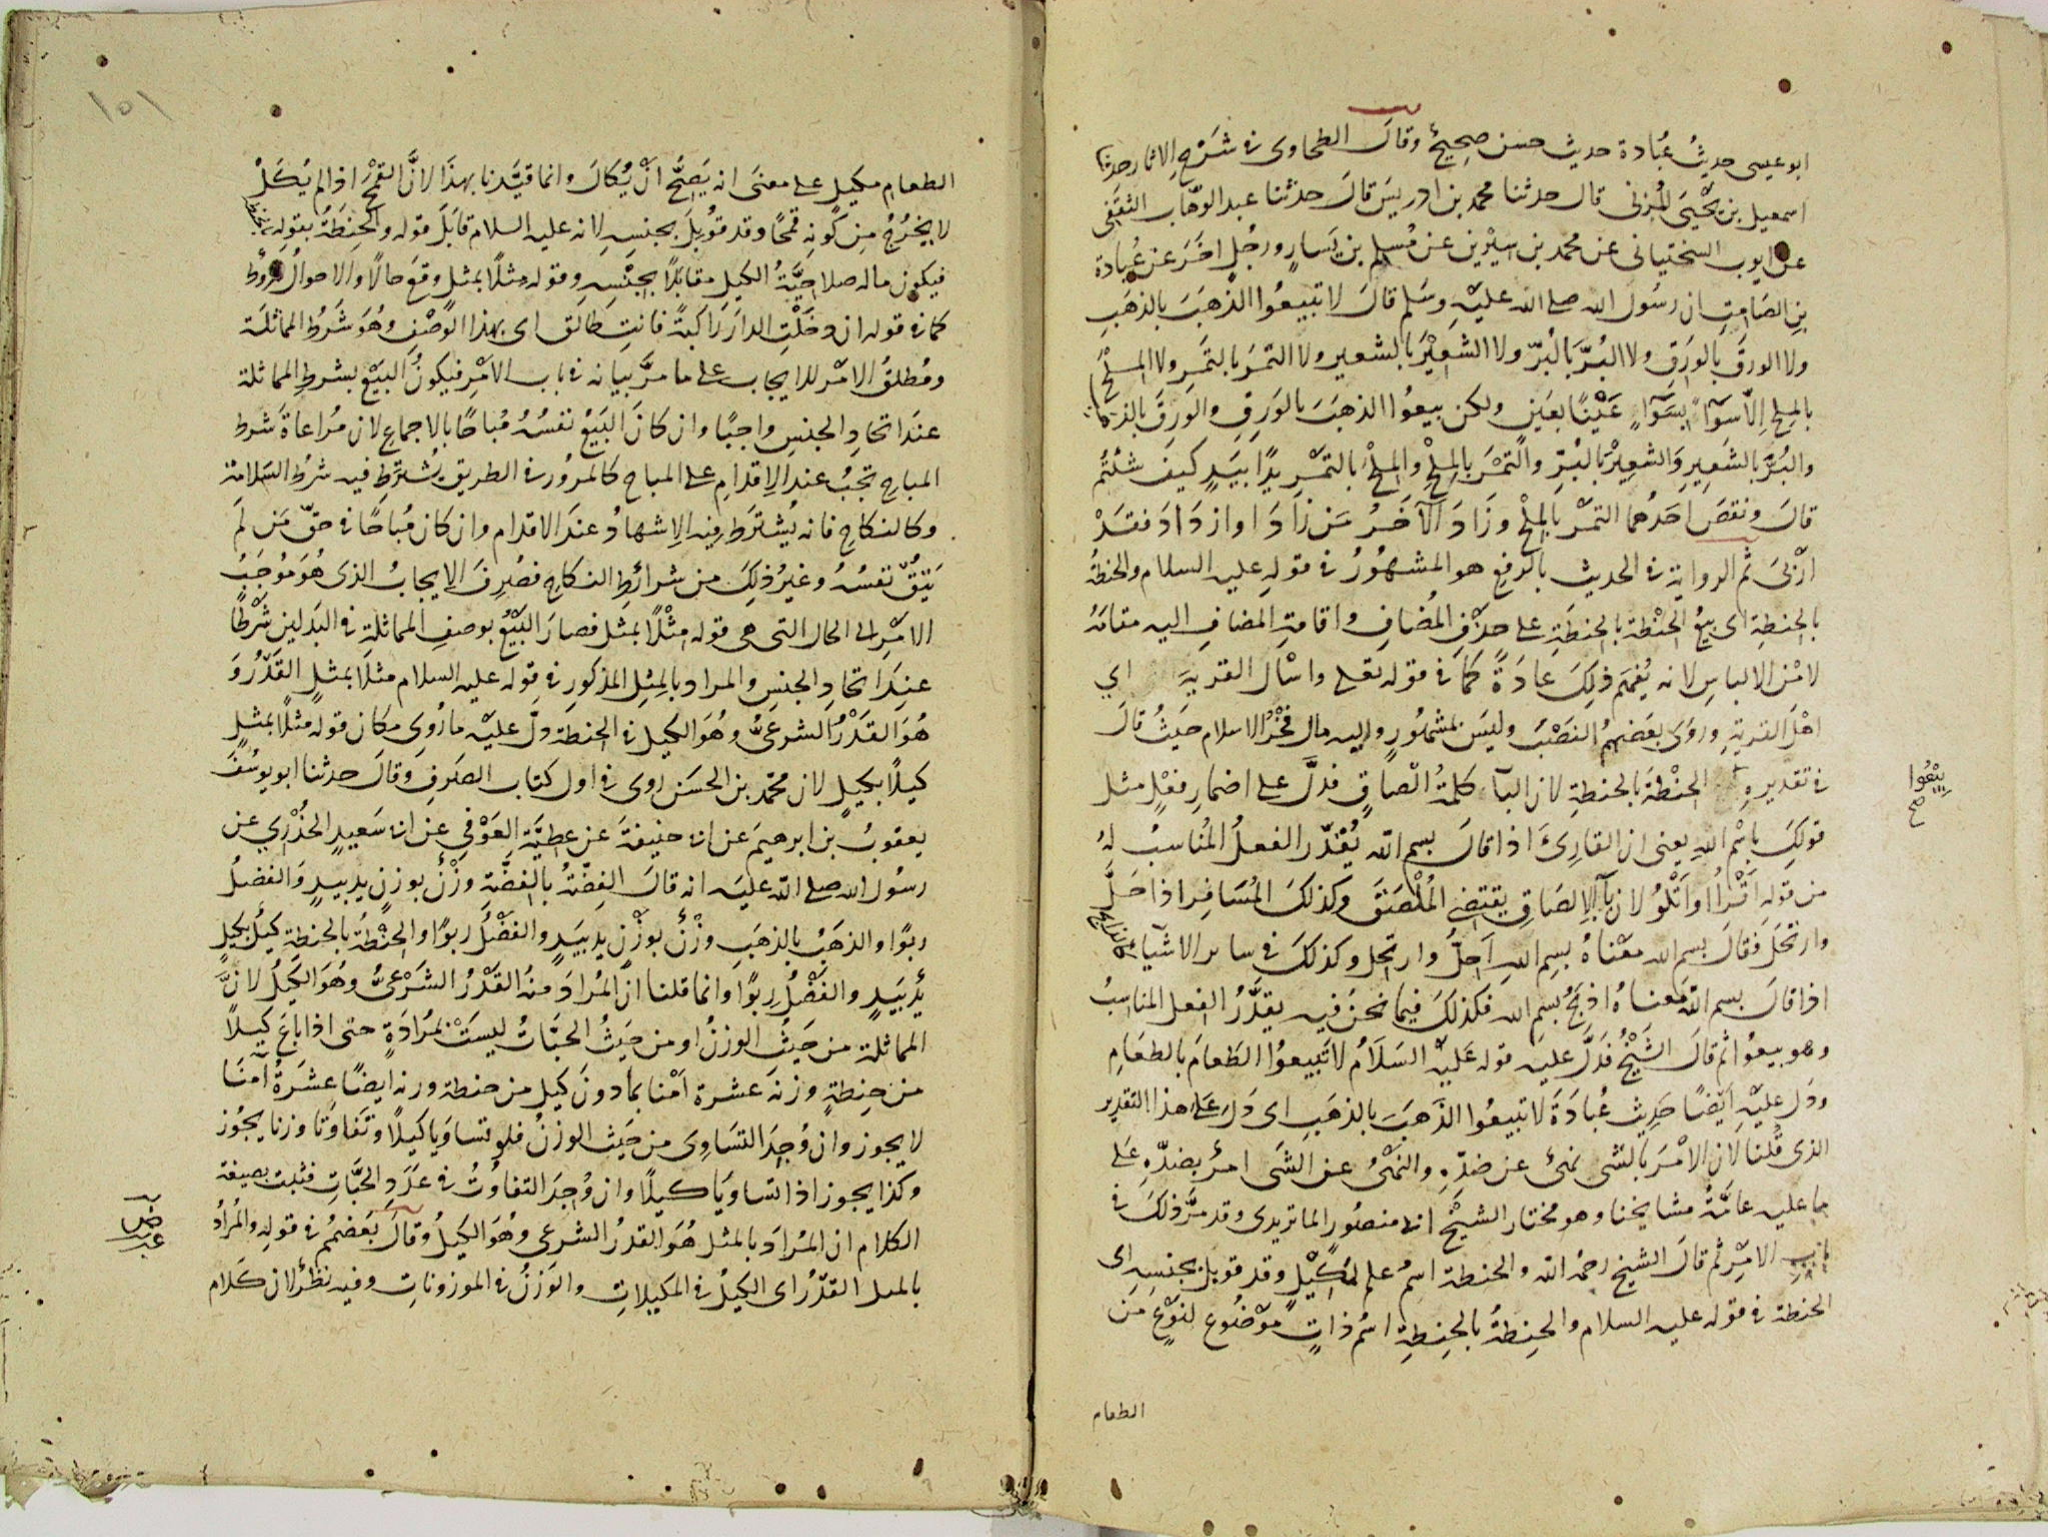 ابو عيسى حديثُ عُبَادة حديث حسن صحيحٌ وقالَ الطحاوى فى شَرْحِ الاثار حدثنا
اسمعيل بن يَحْيَى المُزنى قال حدثنا محمد بن ادريسَ قالَ حدثنا عبد الوهّاب الثقفى
عن ايوب السختيانى عن محمد بن سِيْرين عن مُسلم بن يَسارٍ ورجُلٍ اخَرَ عن عُبادة
بنِ الصَامِتِ ان رسُول الله صلى الله عليْهِ وسَلم قالَ لا تبيعُوا الذهَبَ بالذهَبِ
ولا الورقَ بالوَرَقِ ولا البُرَّ بالبُرّ ولا الشعِيْرَ بالشعير ولا التمْرَ بالتمَرِ ولا المِلْحَ
بالمِلحِ اِلّا سوَآءً بسَوَآءٍ عَيْنًا بعَينٍ ولكن بيعُوا الذهَبَ بالوَرَقِ والوَرِقَ بالذهب
والبُرَّ بالشَعِيرِ وَالشعِيْرَ بالبُرّ والتَمْرَ بالمِلحْ والمِلحْ بالتمْرِ يدًا بيَدٍ كيفَ شئتُم
قالَ ونقصَ احَدُهما التمْرَ بالمِلحْ وزَادَ الآخَرُ مَن زَادَ او ازدَادَ فقَدْ
ارْبىَ ثم الرواية فى الحديث بالرفعِ هو المشهُوْرُ فى قولِهِ عليه السلام والحنطةُ
بالحنِطةِ اى بيعُ الحنْطةِ بالحنطَةِ على حذْفِ المُضافِ واقامةِ المضافِ اليه مقامَهُ
لامْنِ الالباسِ لانه يُفهَم ذلِكَ عَادَةً كمَا فى قوله تعلى واسْال القرية اي
اهْلَ القريةِ وروَى بعَضهُم النصَبَ وليْسَ بمشهُورٍ واليه مال فَخْرُ الاسلام حَيثُ قالَ
فى تقديرهِ الحنْطةَ بالحنطةِ لان البآء كلمةُ الْصاقٍ فدلَّ على اضمارِ فعْلٍ مثل
بيْعُوا صح
قولكَ باسْم اللهِ يعنى ان القارِئَ اذا قالَ بسم الله يُقدّر الفعلُ المُناسبُ لهُ
من قولِه اَقْرأُ او اَتلُوْ لان باَّ الاِلصَاقِ يقتضى المُلْصَقَ وكذلكَ المُسَافِر اذا حَلَّ
وارتحَلَ فقالَ بسمِ الله معَنْاهُ بسِمِ اللهِ اَحِلُّ وارتحِل وكذلكَ فى ساير الاشيآء كالذابح
اذا قالَ بسم اللهِ معناهُ اذبحُ بسمِ الله فكذلكَ فيما نحنُ فيه يقدَّرُ الفعل المناسِبُ
وهو بيعُوا ثم قالَ الشيْخُ فدَلَّ عليْه قوله عَليْه السَلاَمُ لا تَبيعوُا الطَعامَ بالطعَامِ
ودَل عليْهِ ايْضًا حَدِيث عُبادَةَ لا تبيعُوا الذَهَبَ بالذهَبِ اى دَلَ عَلى هذا التقدير
الذى قُلنا لان الامْرَ بالشَّى نهىٌ عن ضدّهِ والنهْىُ عن الشَى امرٌ بضدّهِ عَلى
ما عليه عامّةُ مشايخنا وهو مختار الشيْخ ابى منصُور الماتريدى وقد مرَّ ذلكَ فى
بابِ الامْرِ ثم قالَ الشيخ رحمهُ الله والحنطة اسمُ علم لمكِيْلٍ وقد قوبل بجنسِهِ اى
الحنطة فى قوله عليه السلام والحنِطةُ بالحِنِطةِ اسْمُ ذاتٍ موْضُوع لنوْعٍ من
الطعام
١٥١
الطعامِ مكيلٍ على معنَى انه يَصِحُّ انْ يُكالَ وانما قيَّدنا بهذَا لانَّ القمْحَ اذا لم يُكَلْ
لا يخرُجُ مِن كَونِهِ قمْحًا وقد قُوبلَ بجنسِهِ لانه عليه السلام قابَلَ قوله والحِنطَةُ بقولِهِ بالحنطة
فيكون ماله صلاحيَّةُ الكيلِ مقابَلًا بجِنْسِهِ وقوله مِثلًا بمثلٍ وقعَ حالًا والاحوالُ شروط
كما فى قوله ان دخَلْتِ الدارَ رَاكِبةً فانتِ طَالق اى بهذا الوَصْفِ وهُوَ شَرْطُ المماثلَة
ومُطلَقُ الامْر للايجاب على ما مرَّ بيانه فى باب الامْرِ فيكونُ البَيْع بشرطِ المماثلة
عنَد اتحادِ الجنسِ واجبًا وان كانَ البَيْعُ نفسُهُ مُباحًا بالاجماعِ لان مُراعَاةَ شرط
المباحِ تجبُ عند الِاقدامِ على المباح كالمرُورِ فى الطريق يُشترَطُ فيه شرطُ السَلامة
وكالنكاحِ فانه يُشترَط فيه الاِشهادُ عندَ الاقدام وان كان مُباحًا فى حَقّ مَن لَم
يَتُقْ نفسُهُ وغيْرُ ذلِكَ من شرائطِ النكاحِ فصُرِفَ الاِيجابُ الذى هُوَ مُوجَبُ
الامْرِ الى الحال التى هى قوله مِثْلًا بمثلٍ فصارَ البَيْعُ بوصفِ المماثلةِ فى البَدَلينِ شَرْطًا
عنِدَ اتحادِ الجنسِ والمراد بالمِثلِ المذكورِ فى قوله عليه السلام مثلًا بمثلٍ القَدْرُ وَ
هُوَ القَدْرُ الشرعِىُّ وهُوَ الكيل فى الحنطة دلَّ عليْه ما رُوِى مكَان قوله مثلًا بمثلٍ
كيلًا بكيلٍ لان مُحمّد بن الحسَن روى فى اول كتاب الصَرفِ وقالَ حدثنا ابو يوسُف
يعقوبُ بن ابرهيمَ عن ابى حنيفةَ عن عطيَّةَ العَوْفِي عن ابى سَعيدٍ الخُدْرِي عن
رسُول الله صلى الله عليَه انه قالَ الفِضّةُ بالفِضَّةِ وزْنٌ بوزنٍ يد بيدٍ وَالفضلُ
ربوًا والذهَبُ بالذهَبِ وزْنٌ بوزْنٍ يد بيَدٍ والفضْلُ ربوًا والحِنْطةُ بالحِنطةِ كيلٌ بكيلٍ
يدٌ بيَدٍ والفَضْلُ رِبوًا وانما قلنا انَ المُرادَ منْهُ القَدْرُ الشَرْعىُّ وهُوَ الكيلُ لانَّ
المماثلة من حَيثُ الوزنُ او من حَيثُ الحبَّاتُ ليسَتْ بمُرادَةٍ حتى اذا باعَ كيلًا
مِن حِنِطةٍ وزنه عشرة امْنا بما دونَ كيلٍ من حنطة وزنه ايضًا عشَرةُ اَمنَا
لا يجوز وان وُجِدَ التسَاوِى من حَيث الوزنُ فلو تساوَيا كيلًا وتَفاوَتا وزنا يجُوز
وكذا يجوز اذا تساويَا كيلًا وان وُجِدَ التفاوُتُ فى عدَدِ الحبَّاتِ فثبت بصيغة
الكلام ان المُرادَ بالمثل هُوَ القدرُ الشرعى وهُوَ الكيلُ وقالَ بَعَضهُم فى قوله والمُرادُ
بالمثل القدْرُ اى الكيلُ فى المكيلاتِ والوَزنُ فى الموزوناتِ وفيه نظرٌ لان كَلام